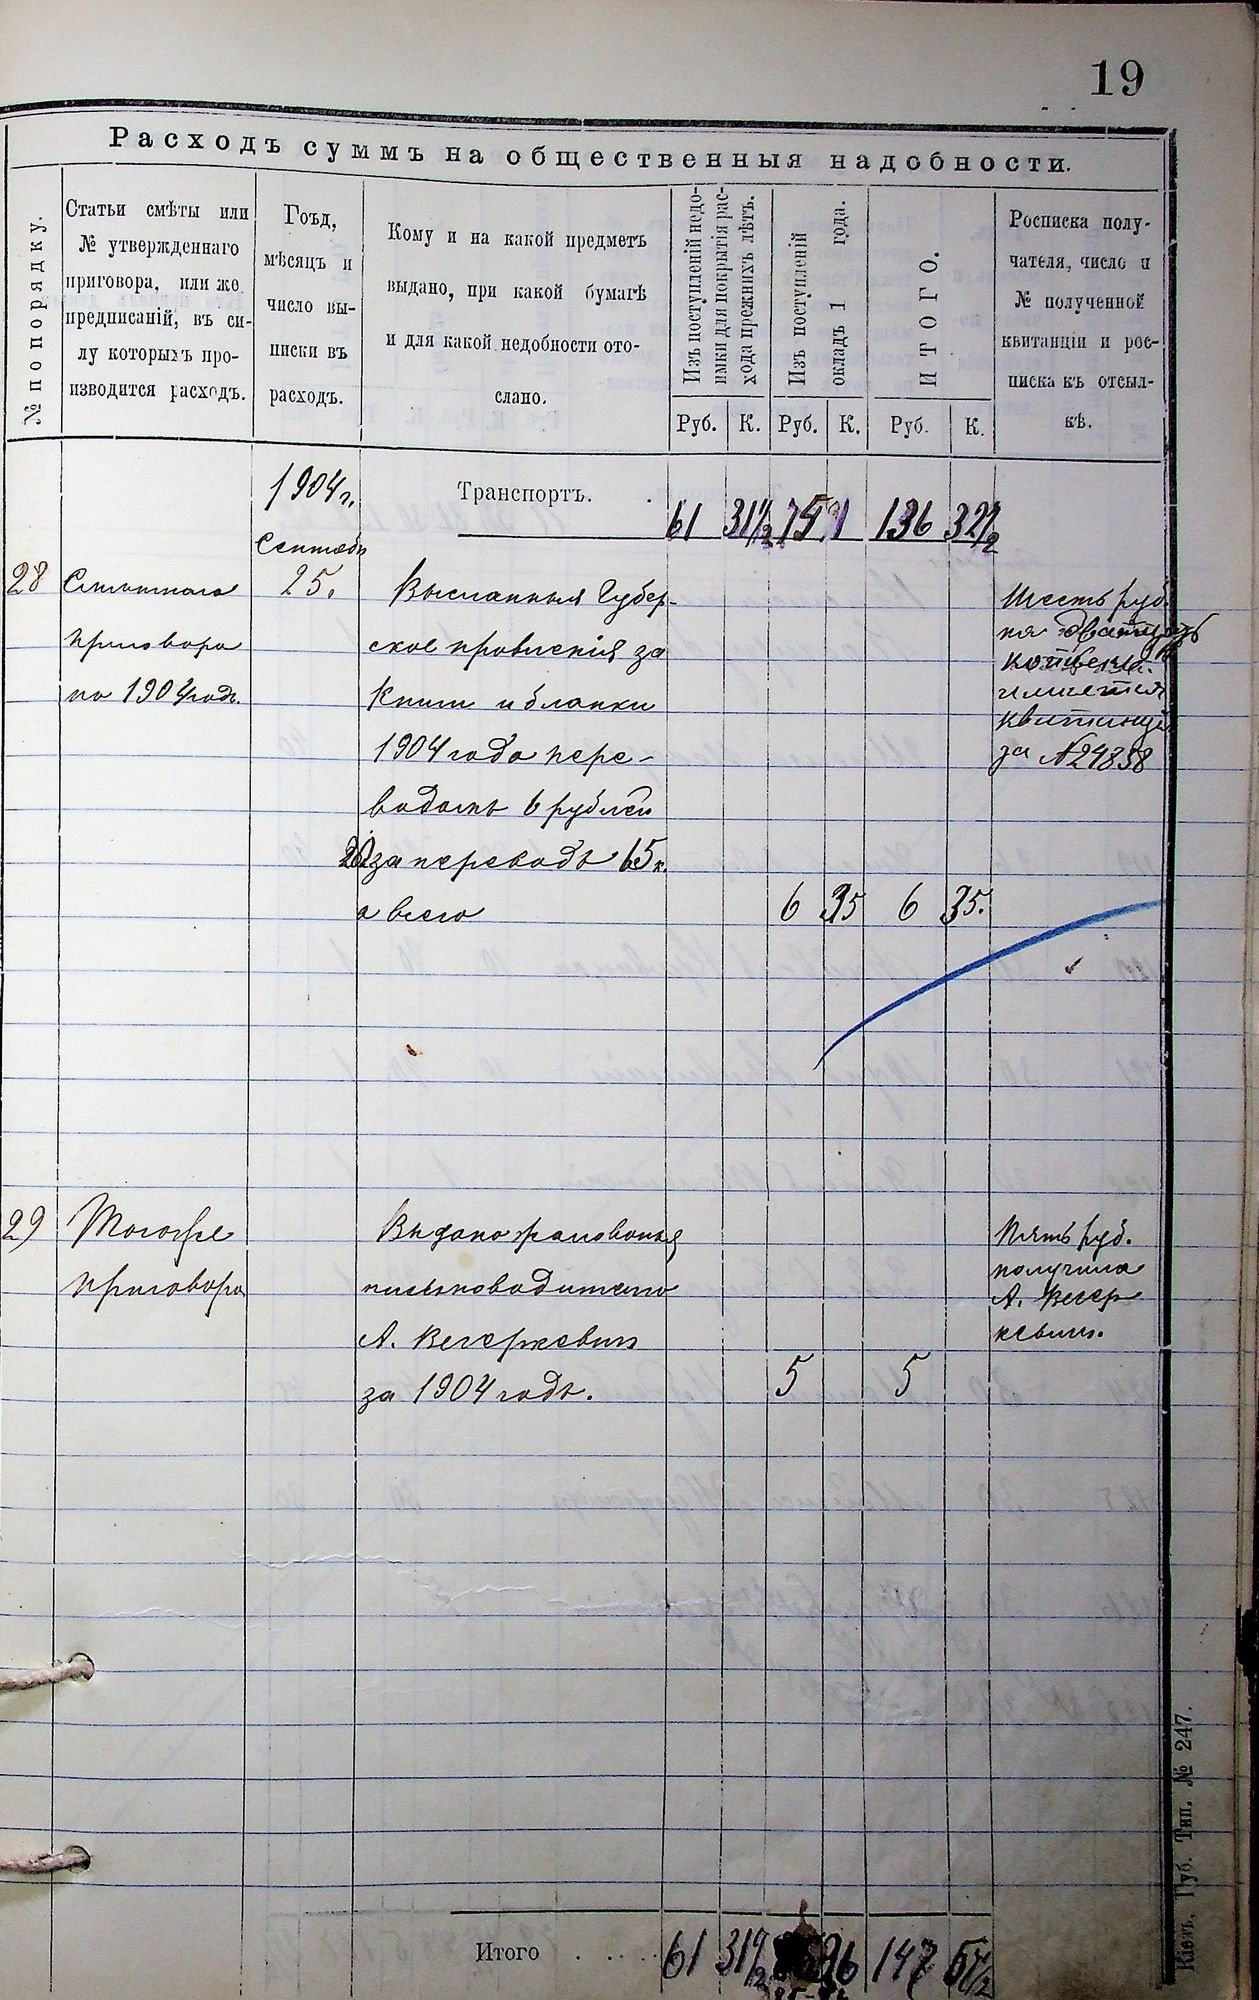 19
Расходъ суммъ на общественныя надобности.
№ по порядку.
Статьи смѣты или
№ утвержденнаго
приговора, или же
предписаній, въ си-
лу которыхъ про-
изводится расходъ.
Гоъд,
мѣсяцъ и
число вы-
писки въ
расходъ.
Кому и на какой предметъ
выдано, при какой бумагѣ
и для какой недобности ото-
слано.
Изъ поступленій недо-
имки для покрытія рас-
хода прежнихъ лѣтъ.
Изъ поступленій
окладъ 1 года.
ИТОГО.
Росписка полу-
чателя, число и
№ полученной
квитанціи и рос-
писка къ отсыл-
кѣ.
Руб. К. Руб. К. Руб. К.
1904 г. Транспортъ. 61 31 1/2 75 1 136 32 1/2
Сентябр
28 25. Высланныя Губер-
приговора ское правленія за
по 1904 годъ. Книги и бланки
1904 года пере-
водомъ 6 рублей
за переводъ 65 к.
а всего 6 35 6 35.
Шесть руб.
квитанція
за № 24838
29 Тогоже Выдано жалованья
приговора письмоводителю
А. Вегеркевич
за 1904 годъ. 5 5
Пять руб.
получила
А. Вегер
кевич.
Итого 61 31 1/2 96 147 67 1/2
Кіевъ, Губ. Тип. № 247.